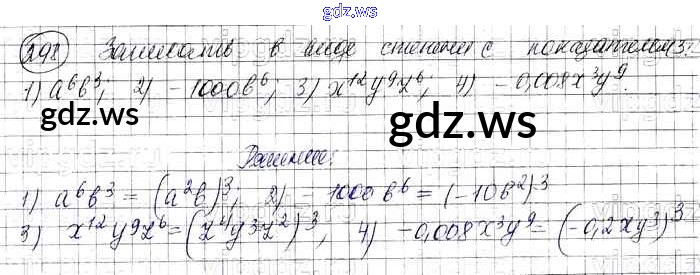 gdz.ws
298 Записать в виде степени с показателем 3:
1) a⁶b³; 2) -1000b⁶; 3) x¹²y⁹z⁶; 4) -0,008x³y⁹.
gdz.ws
gdz.ws
Решение:
1) a⁶b³ = (a²b)³; 2) -1000b⁶ = (-10b²)³
3) x¹²y⁹z⁶ = (z⁴y³z²)³, 4) -0,008x³y⁹ = (-0,2xy³)³
gdz.ws
gdz.ws